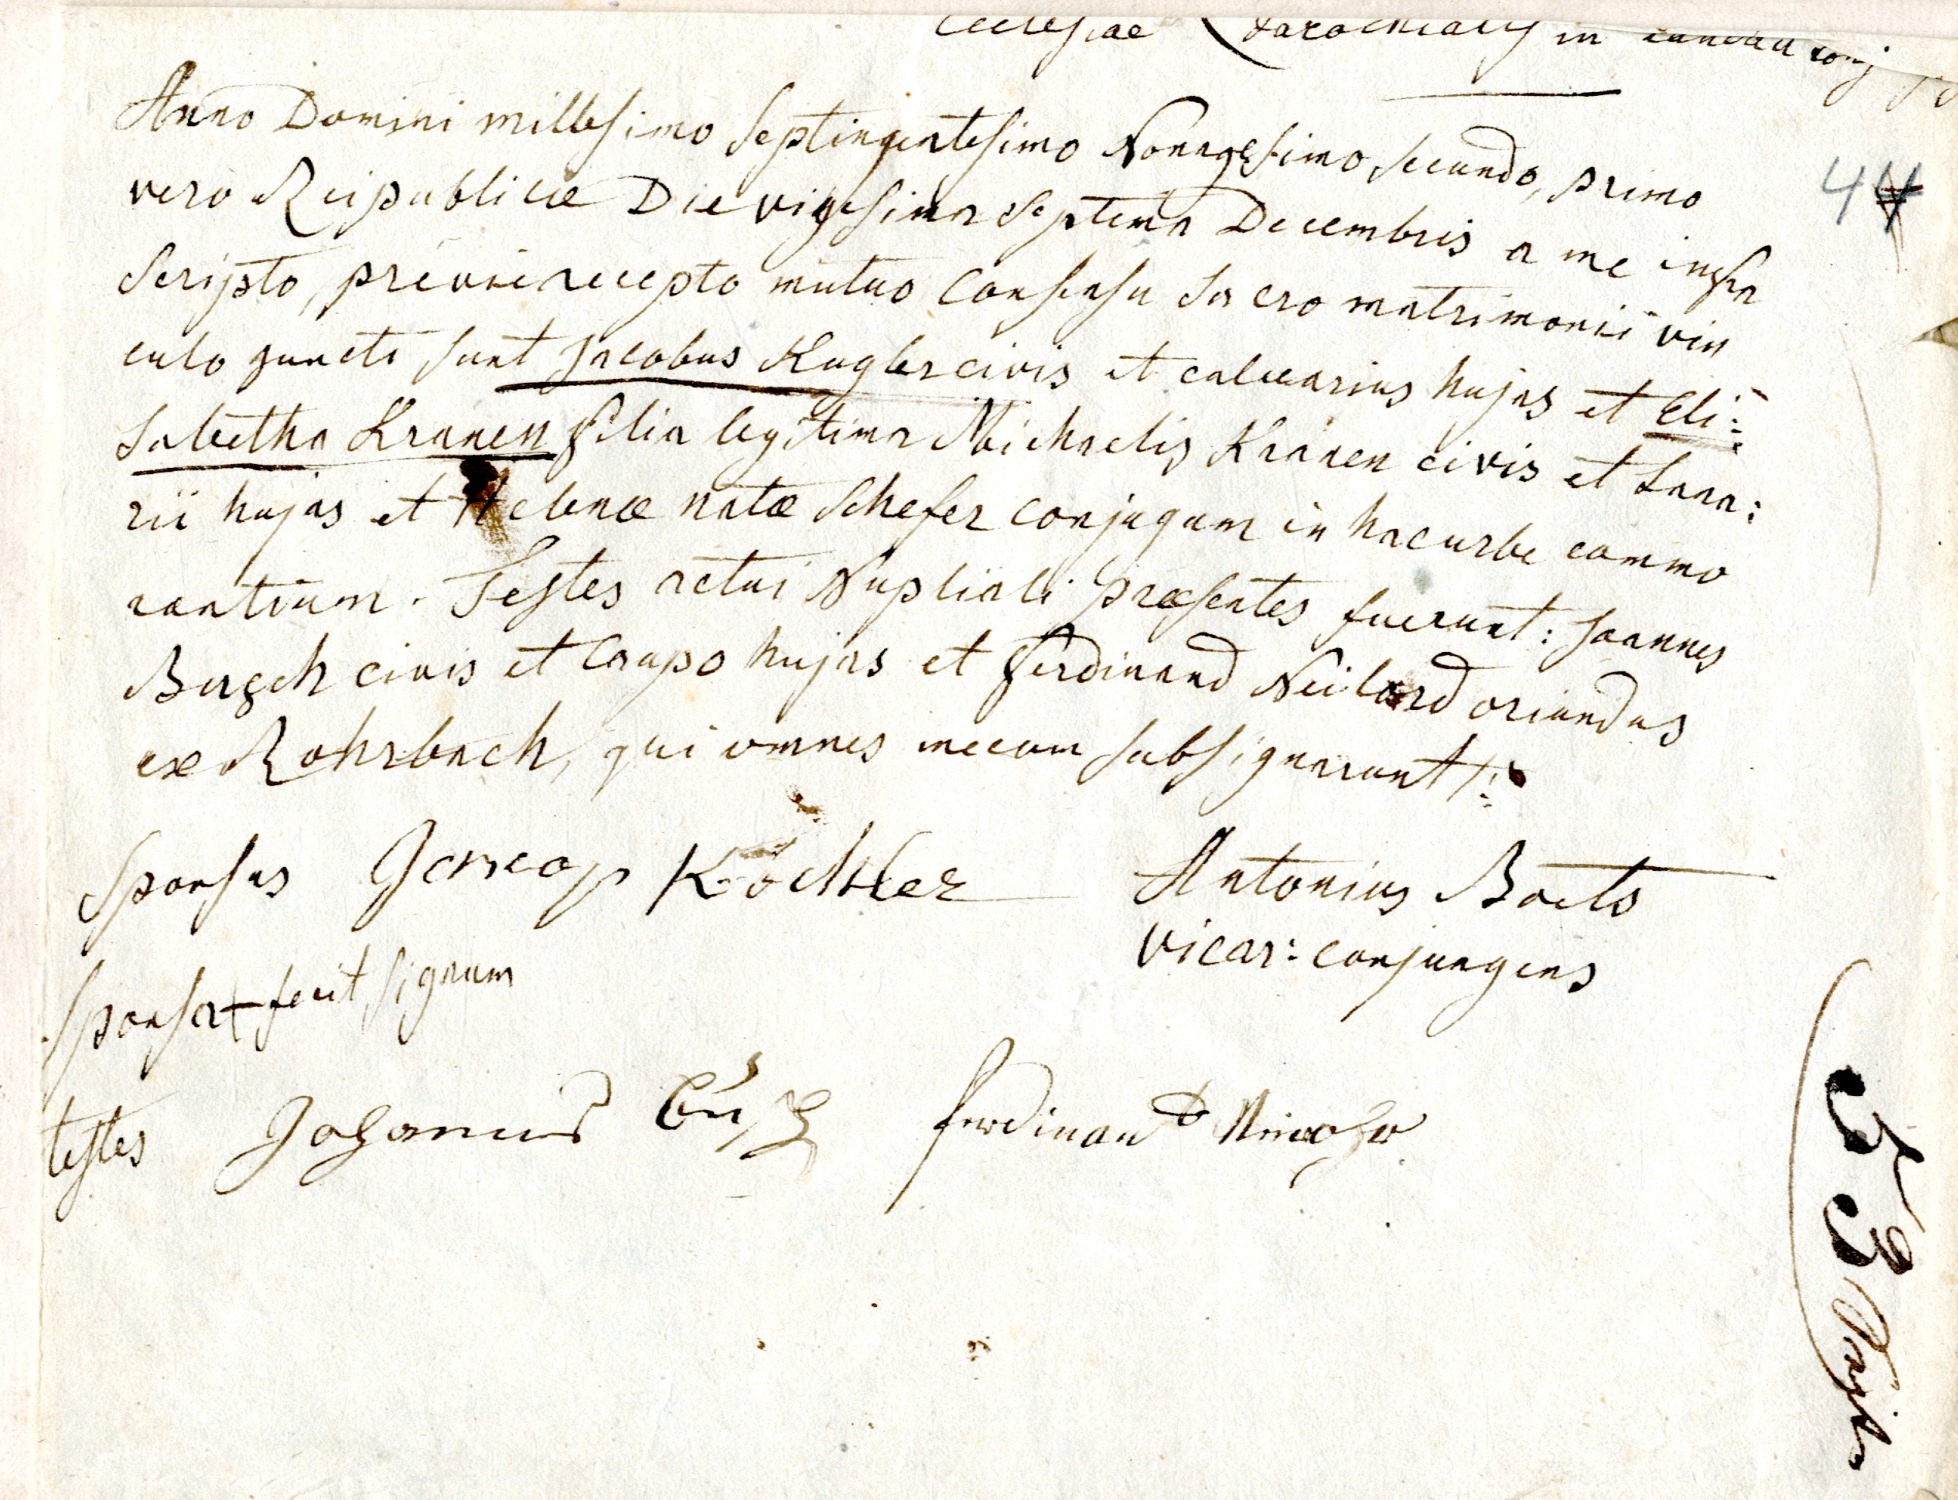 Ecclesiae Parochialis in Landau
Anno Domini millesimo septingentesimo Nonagesimo secundo, primo
vero Reipublicæ Die vigesima septima Decembris a me infra
scripto, previe recepto mutuo consensu sacro matrimonii vin
culo juncti sunt Jacobus Kugler civis et calcearius hujas et Eli:
sabetha Kranen filia legitima Michaelis Kranen civis et Lana:
rii hujas et Helenæ natæ Schefer conjugum in hac urbe commo
rantium. Testes actui Nuptiali præsentes fuerunt: Joannes
Busch civis et Caupo hujas et Ferdinand Neilard oriundus
ex Rohrbach, qui omnes mecum subsignarunt
Sponsus Jacop Köchler
Antonius Boets
vicar: conjungens
Sponsa + fecit signum
testes Johannes Ferdinand
44